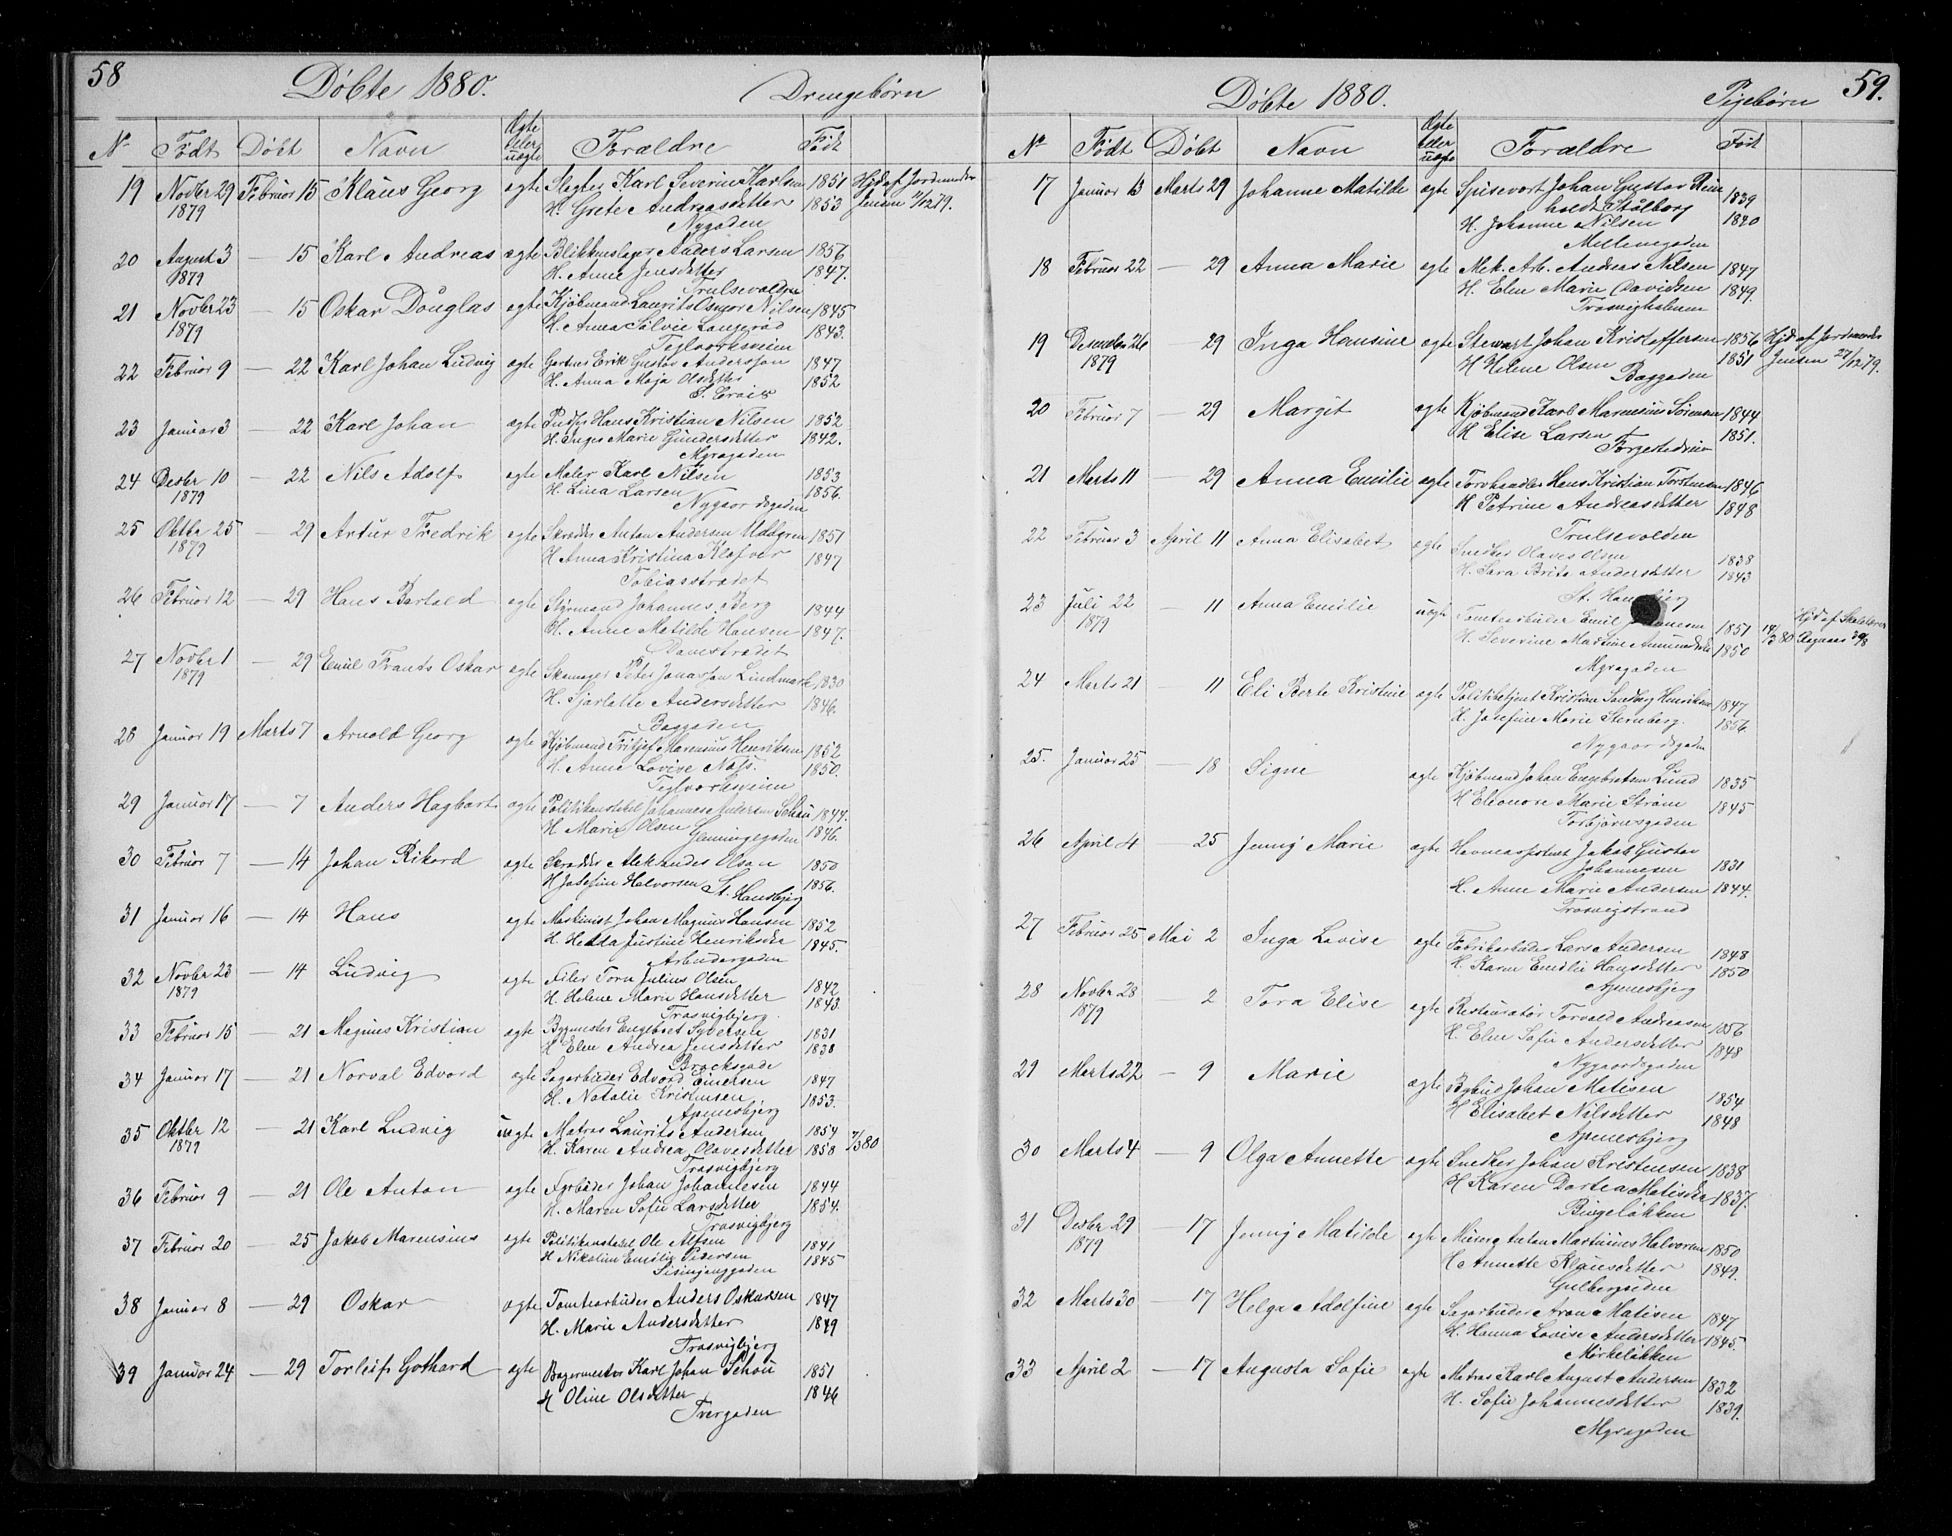 58
Döbte 1880. Drengebörn
No Födt Döbt Navn Ægte eller uægte Forældre Föd
19 Novbr 29 1879 Februar 15 Klaus Georg ægte Slagter Karl Severin Karlsen 1851 Hjd af Jordmoder
H. Grete Andreasdetter 1853 Jensen
Nygaden
20 August 3 1879 — 15 Karl Andreas ægte Blikkenslager Anders Larsen 1856
H. Anne Jensdetter 1847.
Trulsevolden
21 Novbr 23 1879 — 15 Oskar Douglas ægte Kjöbmand Laurits Nilsen 1845
H. Anna Silvie Langeröd 1843.
Teglverksveien
22 Februar 9 — 22 Karl Johan Ludvig ægte Gartner Erik Gustav Andersson 1847
H. Anna Maja Olsdetter 1852
S. Croix
23 Januar 3 — 22 Karl Johan ægte Hans Kristian Nilsen 1852
H. Inger Marie Gundersdetter 1842.
Myragaden
24 Desbr 10 1879 — 22 Nils Adolf ægte Maler Karl Nilsen 1853
H. Lina Larsen 1856.
Nygaardsgaden
25 Oktbr 25 1879 — 29 Artur Fredrik ægte Skrædder Anton Andersen Uddgren 1851
H Anna Kristina 1847
Tobiasstrædet
26 Februar 12 — 29 Hans Bertold ægte Styrmand Johannes Berg 1844
H. Anne Matilde Hansen 1847.
Damstrædet
27 Novbr 1 1879 — 29 Emil Frants Oskar ægte Skomager Peter Jonasson Lindmark 1830
H. Sjarlotte Andersdetter 1846.
Baggaden
28 Januar 19 Marts 7 Arnold Georg ægte Kjöbmand Fritjof Marensius Henriksen 1852
H. Anne Lovise Næss. 1850.
Teglverksveien
29 Januar 17 — 7 Anders Hagbart ægte Politikonstabel Johannes Andersen Schou 1844.
H Marie Olsen 1846.
Gluningegaden
30 Februar 7 — 14 Johan Rikard ægte Skrædder Aleksander Olsen 1850
H Josefine Halvorsen 1856.
St. Hansbjerg
31 Januar 16 — 14 Hans ægte Maskinist Johan Magnus Hansen 1852
H. Hedda Justine Henriksdtr 1845.
Arbeidergaden
32 Novbr 23 1879 — 14 Ludvig ægte Filer Torn Julius Olsen 1842
H. Helene Marie Hansdetter 1843.
Trosvigbjerg.
33 Februar 15 — 21 Magnus Kristian ægte Bygmester Engebret Syversen 1831
H Elen Andrea Jensdetter 1838
Brocksgade
34 Januar 17 — 21 Norval Edvard ægte Sagarbeider Edvard Einersen 1847
H. Natalie Kristensen 1853.
Apenesbjerg
35 Oktbr 12 1879 — 21 Karl Ludvig uægte Matros Laurits Andersen 1854 7/3 80
H. Karen Andrea Olavesdetter 1850
Trosvigbjerg
36 Februar 9 — 21 Ole Anton ægte Fyrböder Johan Johannesen 1844
H. Maren Sofie Larsdetter 1854.
Trosvigbjerg
37 Februar 20 — 25 Jakob Marensius ægte Politikonstabel Ole Alfsen 1841
H Nikoline Emilie Pedersen 1845
38 Januar 8 — 29 Oskar ægte Tomtearbeider Anders Oskarsen 1847
H. Marie Andersdetter 1849
Trosvigbjerg
39 Januar 24 — 29 Torleif Gothard ægte Bagermester Karl Johan Schou 1851
H Oline Olsdetter 1846
Tvergaden
59.
Döbte 1880. Pigebörn
No Födt Döbt Navn Ægte eller uægte Forældre Föd
17 Januar 13 Marts 29 Johanne Matilde ægte Spisevert Johan Gustav Rein 1839
holdt Stålberg
H. Johanne Nilsen 1840
Mellemgaden
18 Februar 22 — 29 Anna Marie ægte Mek. Arb. Anders Nilsen 1847
H. Elen Marie Davidsen 1849.
Trosvigholmen
19 Desember 26 1879 — 29 Inga Hansine ægte Stewart Johan Kristoffersen 1856 Hjd af Jordmoder
H Helene Olsen 1851 Jensen 27/12 79.
Baggaden
20 Februar 7 — 29 Margit ægte Kjöbmand Karl Marensius Sörensen 1844
H Elise Larsen 1851.
Færgestedsveien
21 Marts 11 — 29 Anna Emilie ægte Torvhandler Hans Kristian Torstensen 1846
H Petrine Andreasdetter 1848
Trulsevolden
22 Februar 3 April 11 Anna Elisabet ægte Snedker Olaves Olsen 1838
H. Sara Brita Andersdetter 1843
St. Hansbjerg
23 Juli 22 1879 — 11 Anna Emilie uægte Tomtearbeider Emil 1851 14/3 80 Hjd af Skolelærer
H. Severine Martine Amundsdtr 1850 Aagaas
Myragaden
24 Marts 21 — 11 Eli Berte Kristine ægte Politibetjent Kristian Sandberg Henriksen 1847
H. Josefine Marie Sternberg. 1856.
Nygaardsgaden
25. Januar 25 — 18 Signe ægte Kjöbmand Johan Engebretsen Lund 1835
H Eleonore Marie Ström 1845
Torbjörnsgaden
26 April 4 — 25 Jenny Marie ægte Havneassistent Jakob Gustav
Johannesen 1831
H. Anne Marie Andersen 1844.
Trosvigstrand
27 Februar 25 Mai 2 Inga Lovise ægte Fabrikarbeider Lars Andersen 1848
H. Karen Emilie Hansdetter 1850
Apenesbjerg
28 Novbr 28 1879 — 2 Tora Elise ægte Restauratör Torvald Andreasen 1856
H. Elen Sofie Andersdetter 1848
Nygaardsgaden
29 Marts 22 — 9 Marie ægte Bybud Johan Matisen 1854
H Elisabet Nilsdetter 1848
Apenesbjerg
30 Marts 4 — 9 Olga Annette ægte Snedker Johan Kristensen 1838
H Karen Dortea Matisdtr 1837.
Bingelökken
31 Desbr 29 1879 — 17 Jenny Matilde ægte Murer Anton Martinius Halvorsen 1850
H. Annette Klausdetter 1849.
Gulbergsiden
32 Marts 30 — 17 Helga Adolfine ægte Sagarbeider Aron Matisen 1847
H. Hanna Lovise Andersdetter 1845.
Mörkelökken
33 April 2 — 17 Augusta Sofie ægte Matros Karl August Andersen 1832
H. Sofie Johannesdetter 1839.
Myragaden